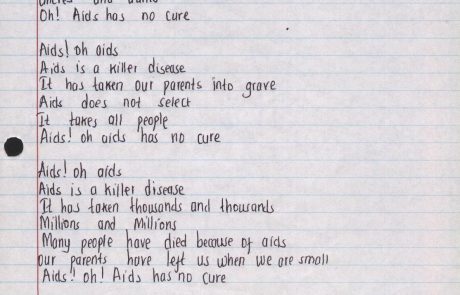 Oh! Aids has no cure
Aids! oh aids
Aids is a killer disease
It has taken our parents into grave
Aids does not select
It takes all people
Aids! oh aids has no cure
Aids! oh aids
Aids is a killer disease
It has taken thousands and thousands
Millions and Millions
Many people have died because of aids
our parents have left us when we are small
Aids! oh! Aids has no cure